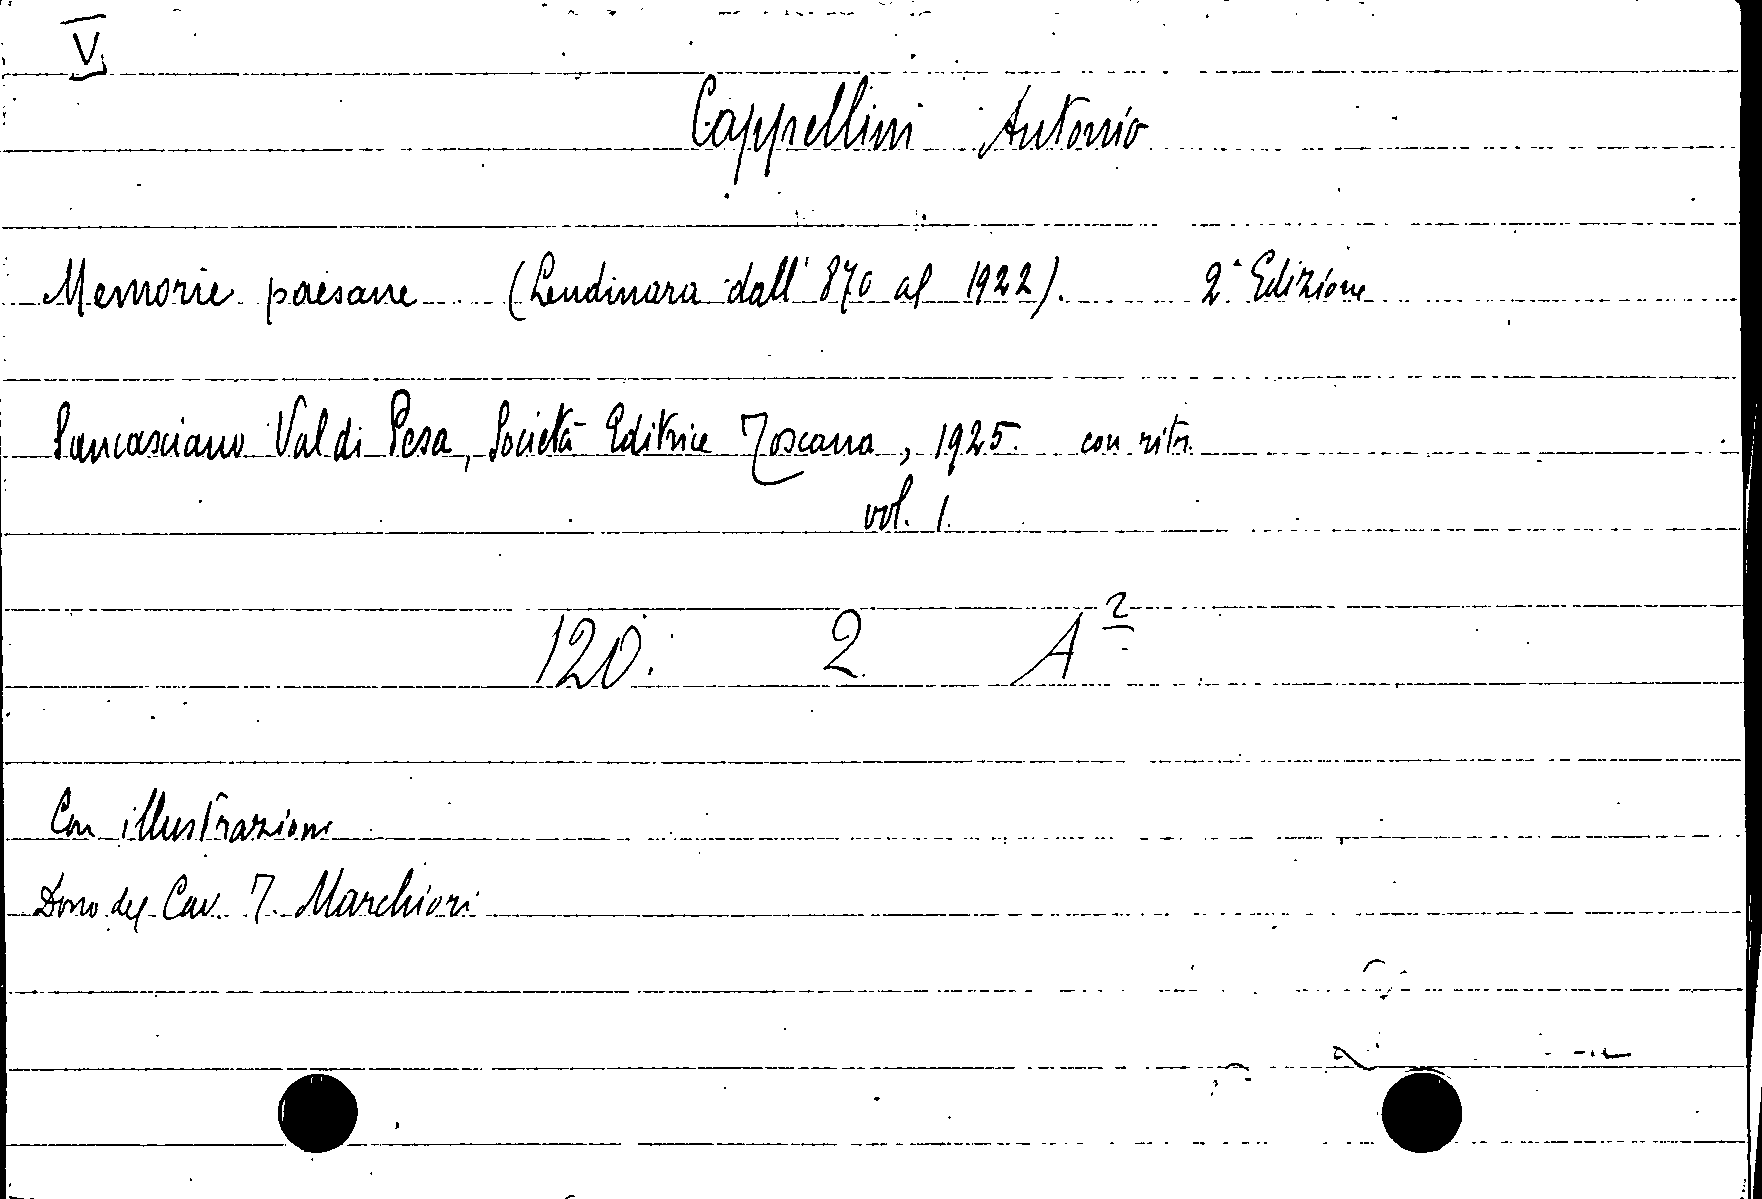 V
Cappellini Antonio
Memorie paesane (Lendinara dall' 870 al 1922). 2ª Edizione
Sancasciano Val di Pesa, Società Editrice Toscana, 1925. con ritr.
vol. 1.
120. 2 A 2
Con illustrazioni
Dono del Cav. T. Marchiori